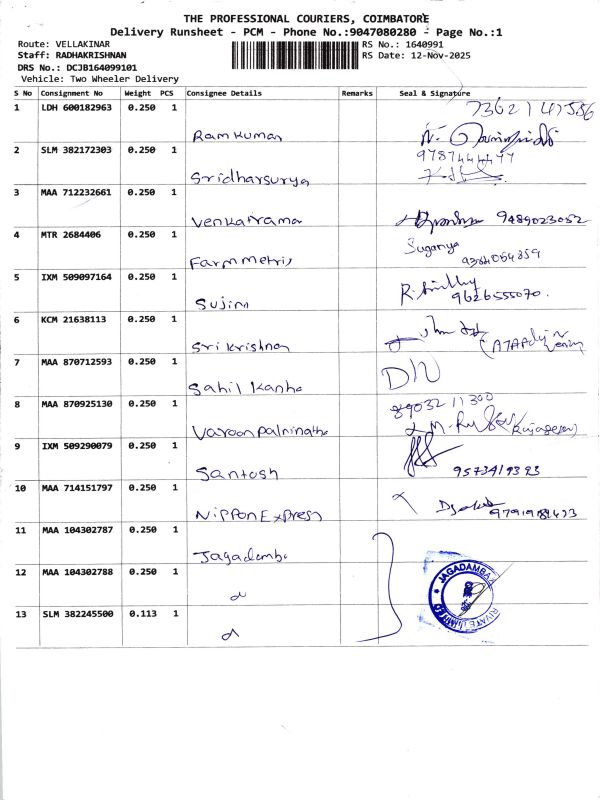 THE PROFESSIONAL COURIERS, COIMBATORE
Delivery Runsheet - PCM - Phone No.:9047080280 - Page No.:1
Route: VELLAKINAR
RS No.: 1640991
Staff: RADHAKRISHNAN
RS Date: 12-Nov-2025
DRS No.: DCJB164099101
Vehicle: Two Wheeler Delivery
S No Consignment No Weight PCS Consignee Details Remarks Seal & Signature
1 LDH 600182963 0.250 1
Ramkumar
2 SLM 382172303 0.250 1
Sridharsurya
3 MAA 712232661 0.250 1
Venkatrama 9489023052
4 MTR 2684406 0.250 1
Suganya
Farmmetris
5 IXM 509097164 0.250 1
Sujini 9626555070.
6 KCM 21638113 0.250 1
Srikrishnan
7 MAA 870712593 0.250 1
Sahil Kanha
8 MAA 870925130 0.250 1
Varoonpalninatha
9 IXM 509290079 0.250 1
Santosh 9573419393
10 MAA 714151797 0.250 1
Nippon Express
11 MAA 104302787 0.250 1
Jagadamba
12 MAA 104302788 0.250 1
13 SLM 382245500 0.113 1
JAGADAMBA